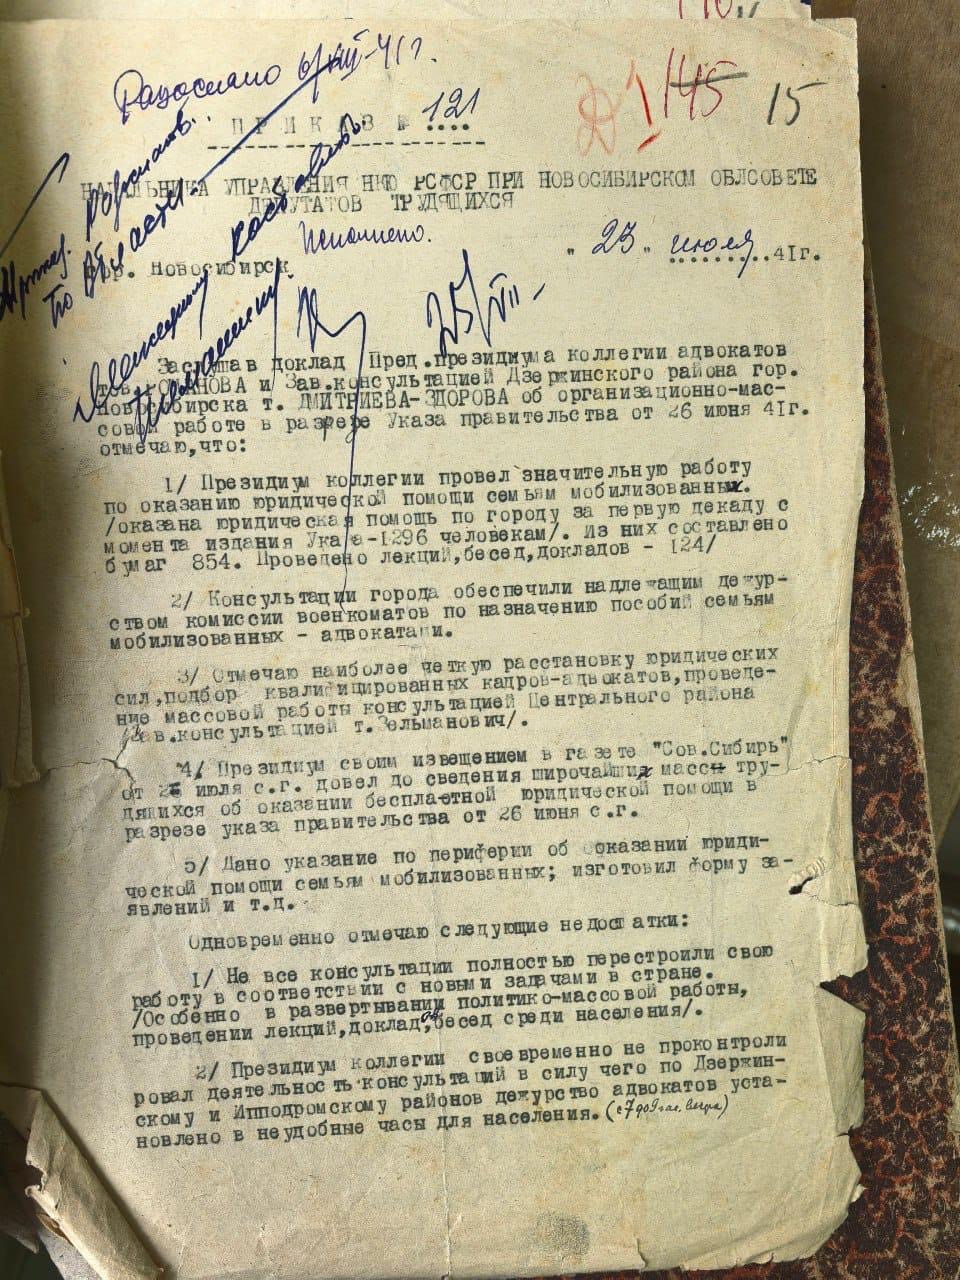 145 15
Разослано 6/VIII-41г.
ПРИКАЗ № 121
НАЧАЛЬНИКА УПРАВЛЕНИЯ НКЮ РСФСР ПРИ НОВОСИБИРСКОМ ОБЛСОВЕТЕ
ДЕПУТАТОВ ТРУДЯЩИХСЯ
Исполнено.
"23" июля 41г.
гор. Новосибирск
25/VII-
Заслушав доклад Пред.президиума коллегии адвокатов
тов. и Зав.консультацией Дзержинского района гор.
Новосибирска т. ДМИТРИЕВА-ЗДОРОВА об организационно-мас-
совой работе в разрезе Указа правительства от 26 июня 41г.
отмечаю,что:
1/ Президиум коллегии провел значительную работу
по оказанию юридической помощи семьям мобилизованных.
/оказана юридическая помощь по городу за первую декаду с
момента издания Указа-1296 человекам/. Из них составлено
бумаг 854. Проведено лекций,бесед,докладов - 124/
2/ Консультации города обеспечили надлежащим дежур-
ством комиссии военкоматов по назначению пособий семьям
мобилизованных - адвокатами.
3/ Отмечаю наиболее четкую расстановку юридических
сил,подбор квалифицированных кадров-адвокатов,проведе-
ние массовой работы консультацией Центрального района
/Зав.консультацией т.Зельманович/.
4/ Президиум своим извещением в газете "Сов.Сибирь"
от июля с.г. довел до сведения широчайших масс тру-
дящихся об оказании бесплатной юридической помощи в
разрезе указа правительства от 26 июня с.г.
5/ Дано указание по периферии об оказании юриди-
ческой помощи семьям мобилизованных; изготовил форму за-
явлений и т.д.
Одновременно отмечаю следующие недостатки:
1/ Не все консультации полностью перестроили свою
работу в соответствии с новыми задачами в стране.
/Особенно в развертывании политико-массовой работы,
проведении лекций,докладов,бесед среди населения/.
2/ Президиум коллегии своевременно не проконтроли
ровал деятельность консультаций в силу чего по Дзержин-
скому и Ипподромскому районов дежурство адвокатов уста-
новлено в неудобные часы для населения. (с 7 до 9 час. вечера)